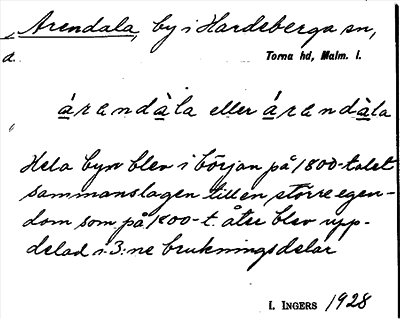 Arendala, by i Hardeberga sn,
d. Torna hd, Malm. l.
árandàla eller árandàla
Hela byn blev i början på 1800-talet
sammanslagen till en större egen-
dom som på 1800-t. åter blev upp-
delad i 3:ne brukningsdelar
I. INGERS 1928